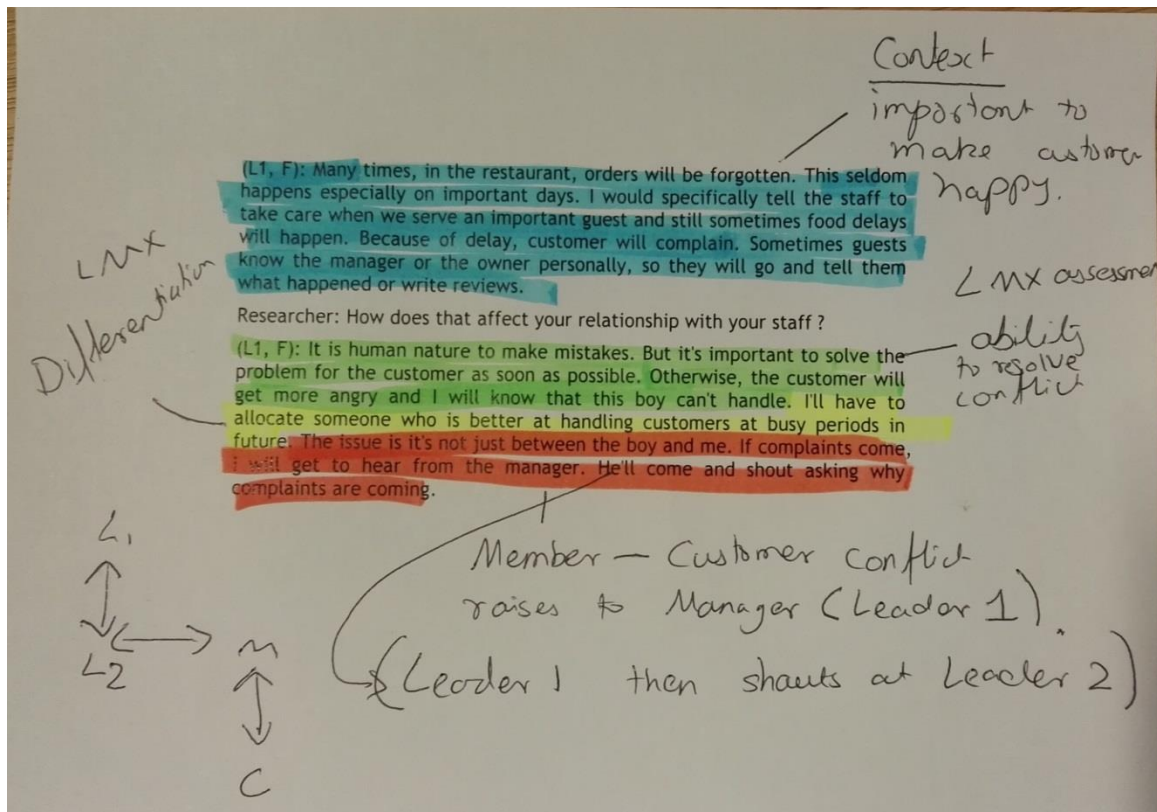 Context
important to
make customer
happy.
(L1, F): Many times, in the restaurant, orders will be forgotten. This seldom
happens especially on important days. I would specifically tell the staff to
take care when we serve an important guest and still sometimes food delays
will happen. Because of delay, customer will complain. Sometimes guests
know the manager or the owner personally, so they will go and tell them
what happened or write reviews.
LMX
Differentiation
Researcher: How does that affect your relationship with your staff ?
LMX assessmen
ability
to resolve
conflict
(L1, F): It is human nature to make mistakes. But it's important to solve the
problem for the customer as soon as possible. Otherwise, the customer will
get more angry and I will know that this boy can't handle. I'll have to
allocate someone who is better at handling customers at busy periods in
future. The issue is it's not just between the boy and me. If complaints come,
i will get to hear from the manager. He'll come and shout asking why
complaints are coming.
Member – Customer conflict
raises to Manager (Leader 1).
(Leader 1 then shouts at Leader 2)
L1
L2 M
C